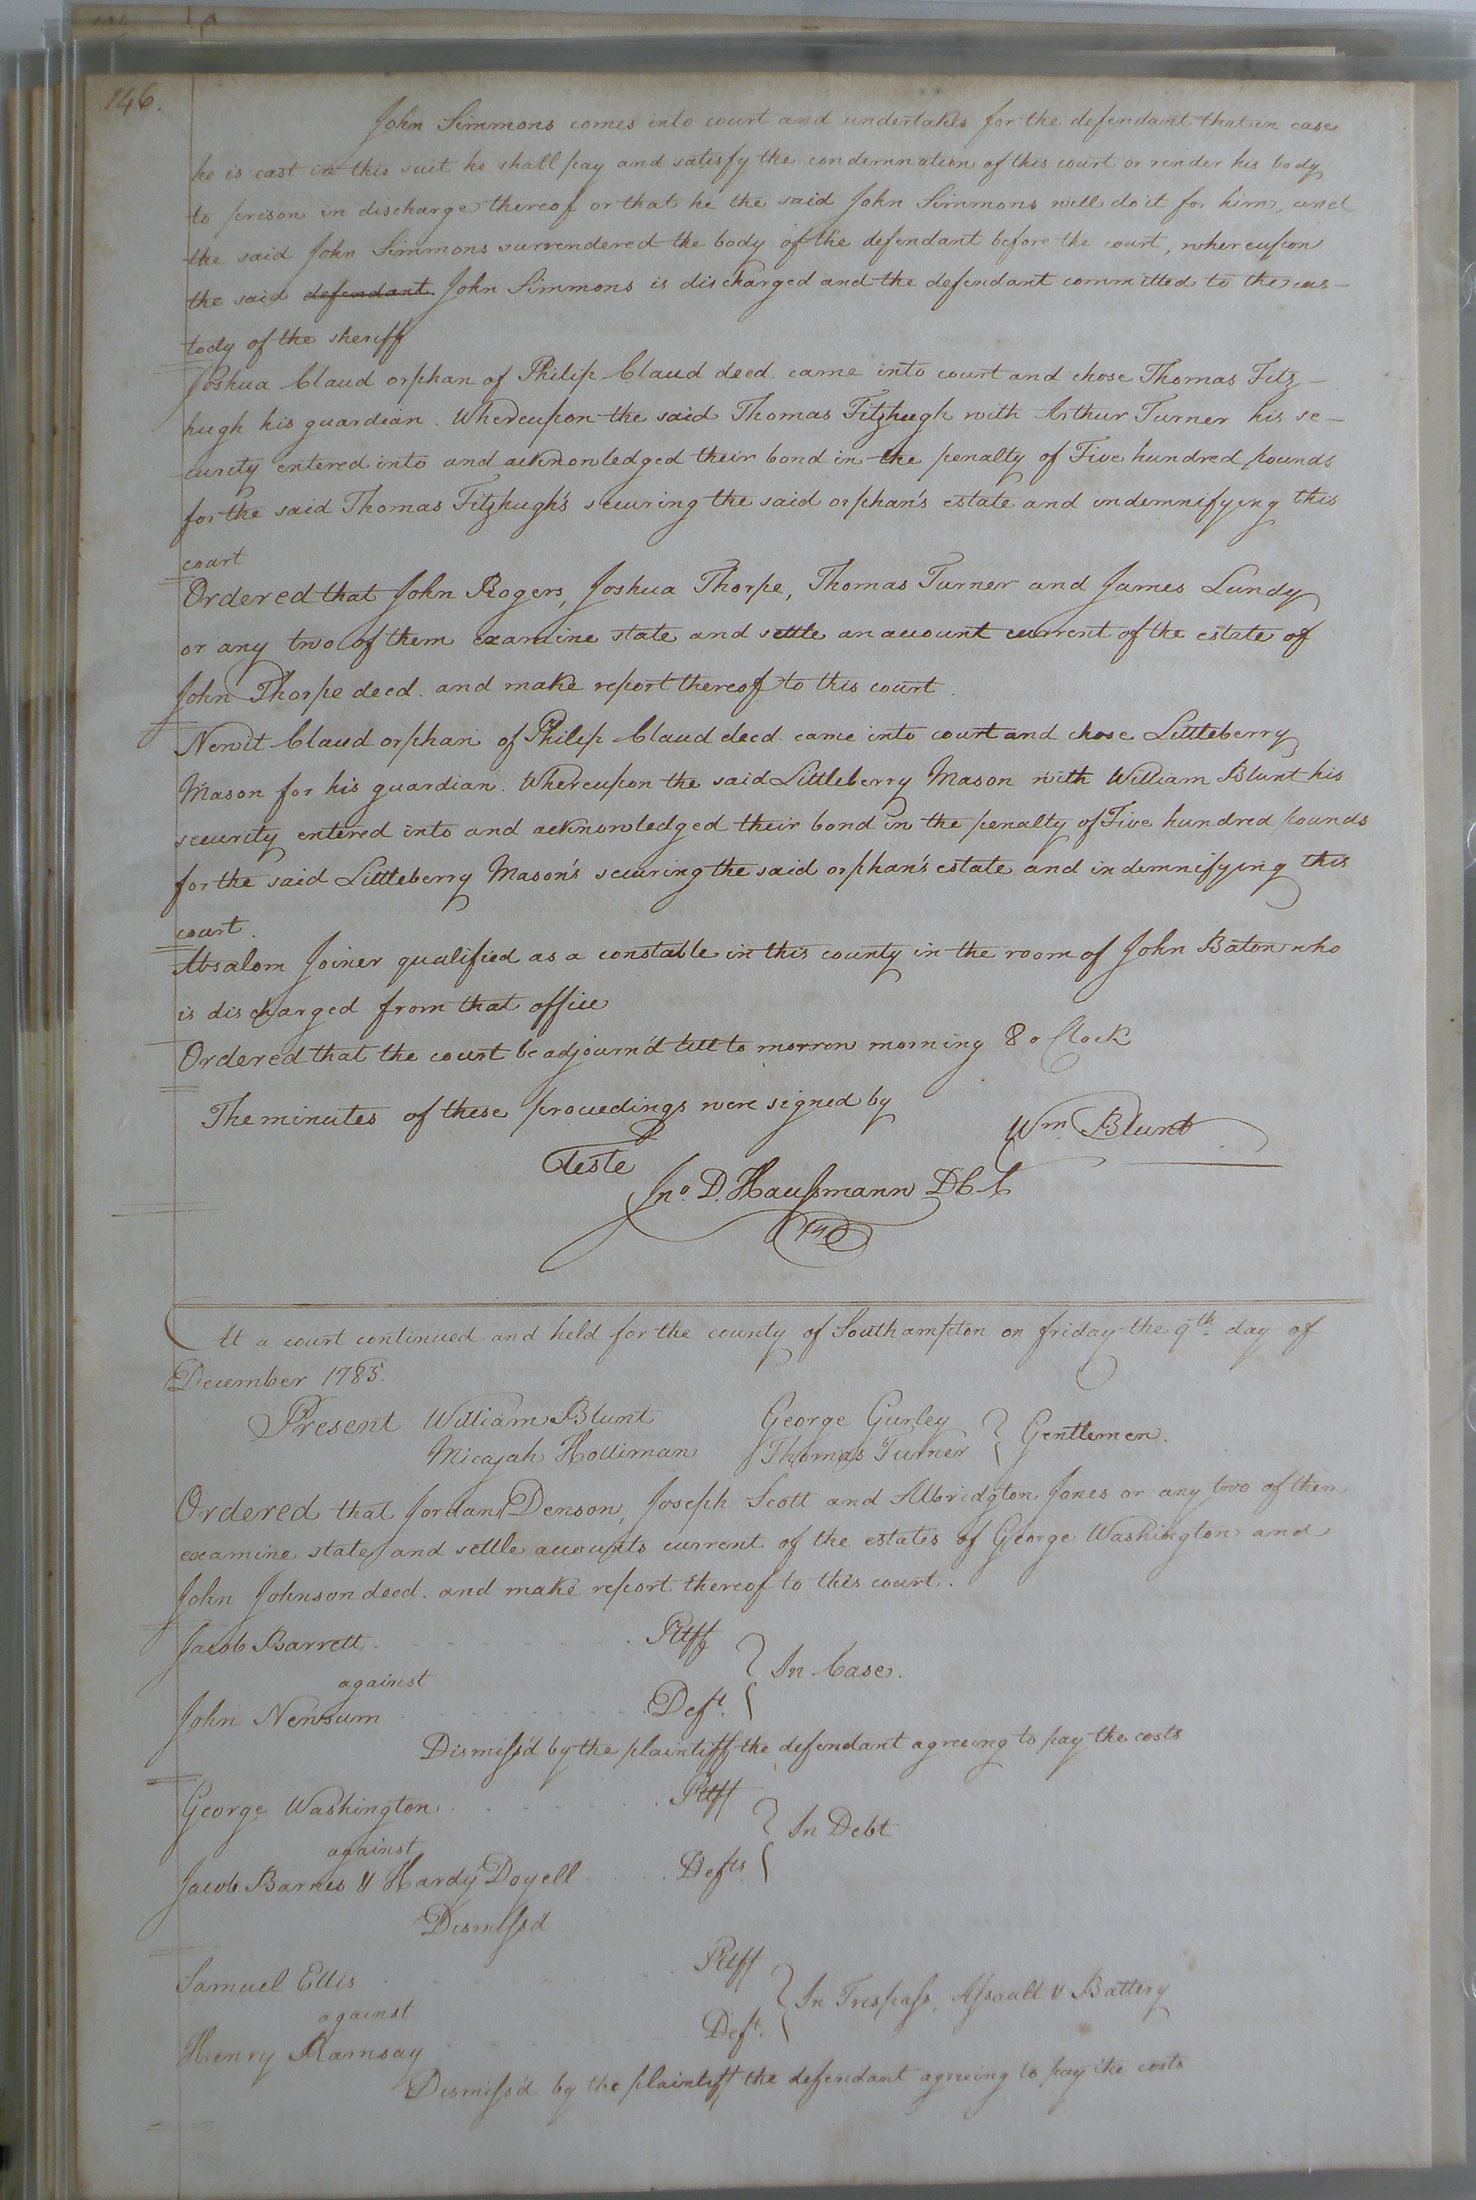 146.
John Simmons comes into court and undertakes for the defendant that in case
he is cast in this suit he shall pay and satisfy the condemnation of this court or render his body
to prison in discharge thereof or that he the said John Simmons will do it for him, and
the said John Simmons surrendered the body of the defendant before the court, whereupon
the said defendant John Simmons is discharged and the defendant committed to the cus-
tody of the sheriff
Joshua Claud orphan of Philip Claud deed. came into court and chose Thomas Fitz-
hugh his guardian. Whereupon the said Thomas Fitzhugh with Arthur Turner his se-
curity entered into and acknowledged their bond in the penalty of Five hundred pounds
for the said Thomas Fitzhugh's securing the said orphan's estate and indemnifying this
court
Ordered that John Rogers, Joshua Thorpe, Thomas Turner and James Lundy
or any two of them examine state and settle an account current of the estate of
John Thorpe deed. and make report thereof to this court.
Newit Claud orphan of Philip Claud deed. came into court and chose Littleberry
Mason for his guardian. Whereupon the said Littleberry Mason with William Blunt his
security entered into and acknowledged their bond in the penalty of Five hundred pounds
for the said Littleberry Mason's securing the said orphan's estate and indemnifying this
court.
Absalom Joiner qualified as a constable in this county in the room of John Baton who
is discharged from that office
Ordered that the court be adjourn'd till to morrow morning 8 o Clock
The minutes of these proceedings were signed by
Wm. Blunt
Teste
Jno. D. Haußmann D C C
At a court continued and held for the county of Southampton on friday the 9th. day of
December 1785.
Present William Blunt George Gurley
Micajah Holliman Thomas Turner } Gentlemen.
Ordered that Jordan Denson, Joseph Scott and Albridgton Jones or any two of them
examine state and settle accounts current of the estates of George Washington and
John Johnson deed. and make report thereof to this court.
Jacob Barrett. Pltff
against } In Case.
John Newsum Deft.
Dismiss'd by the plaintiff the defendant agreeing to pay the costs
George Washington Pltff
against } In Debt
Jacob Barnes & Hardy Doyell Defts.
Dismiss'd
Samuel Ellis Pltff
against } In Trespass, Assault & Battery
Henry Ramsay Deft.
Dismiss'd by the plaintiff the defendant agreeing to pay the costs